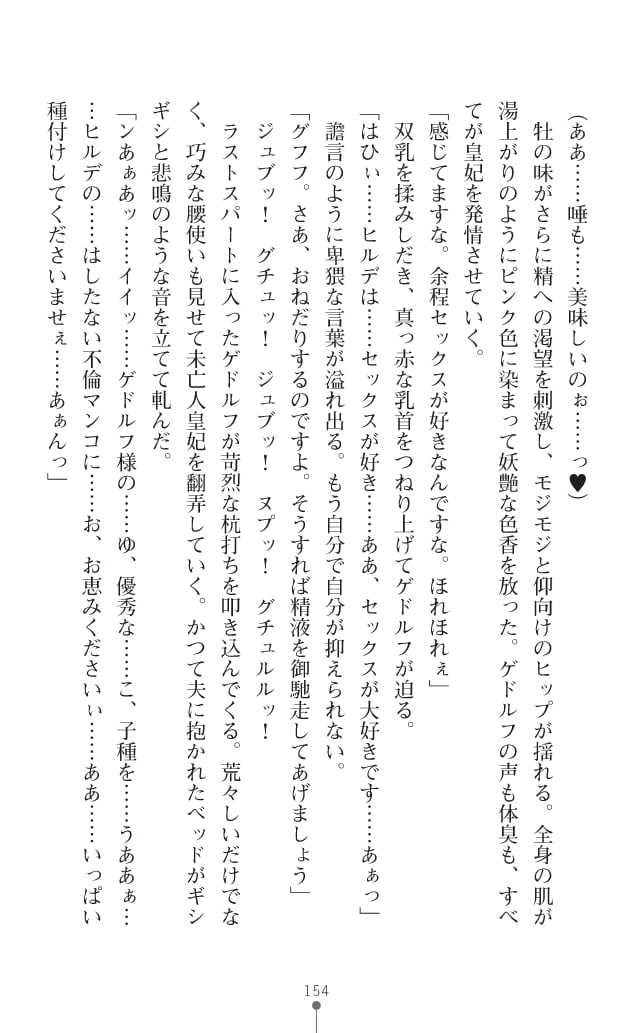 (ああ……唾も……美味しいのぉ……っ♥)
　牡の味がさらに精への渇望を刺激し、モジモジと仰向けのヒップが揺れる。全身の肌が
湯上がりのようにピンク色に染まって妖艶な色香を放った。ゲドルフの声も体臭も、すべ
てが皇妃を発情させていく。
「感じてますな。余程セックスが好きなんですな。ほれほれぇ」
　双乳を揉みしだき、真っ赤な乳首をつねり上げてゲドルフが迫る。
「はひぃ……ヒルデは……セックスが好き……ああ、セックスが大好きです……あぁっ」
　譫言のように卑猥な言葉が溢れ出る。もう自分で自分が抑えられない。
「グフフ。さあ、おねだりするのですよ。そうすれば精液を御馳走してあげましょう」
　ジュブッ！　グチュッ！　ジュブッ！　ヌプッ！　グチュルルッ！
　ラストスパートに入ったゲドルフが苛烈な杭打ちを叩き込んでくる。荒々しいだけでな
く、巧みな腰使いも見せて未亡人皇妃を翻弄していく。かつて夫に抱かれたベッドがギシ
ギシと悲鳴のような音を立てて軋んだ。
「ンあぁあッ……イイッ……ゲドルフ様の……ゆ、優秀な……こ、子種を……うああぁ…
…ヒルデの……はしたない不倫マンコに……お、お恵みくださいぃ……ああ……いっぱい
種付けしてくださいませぇ……あぁんっ」
154